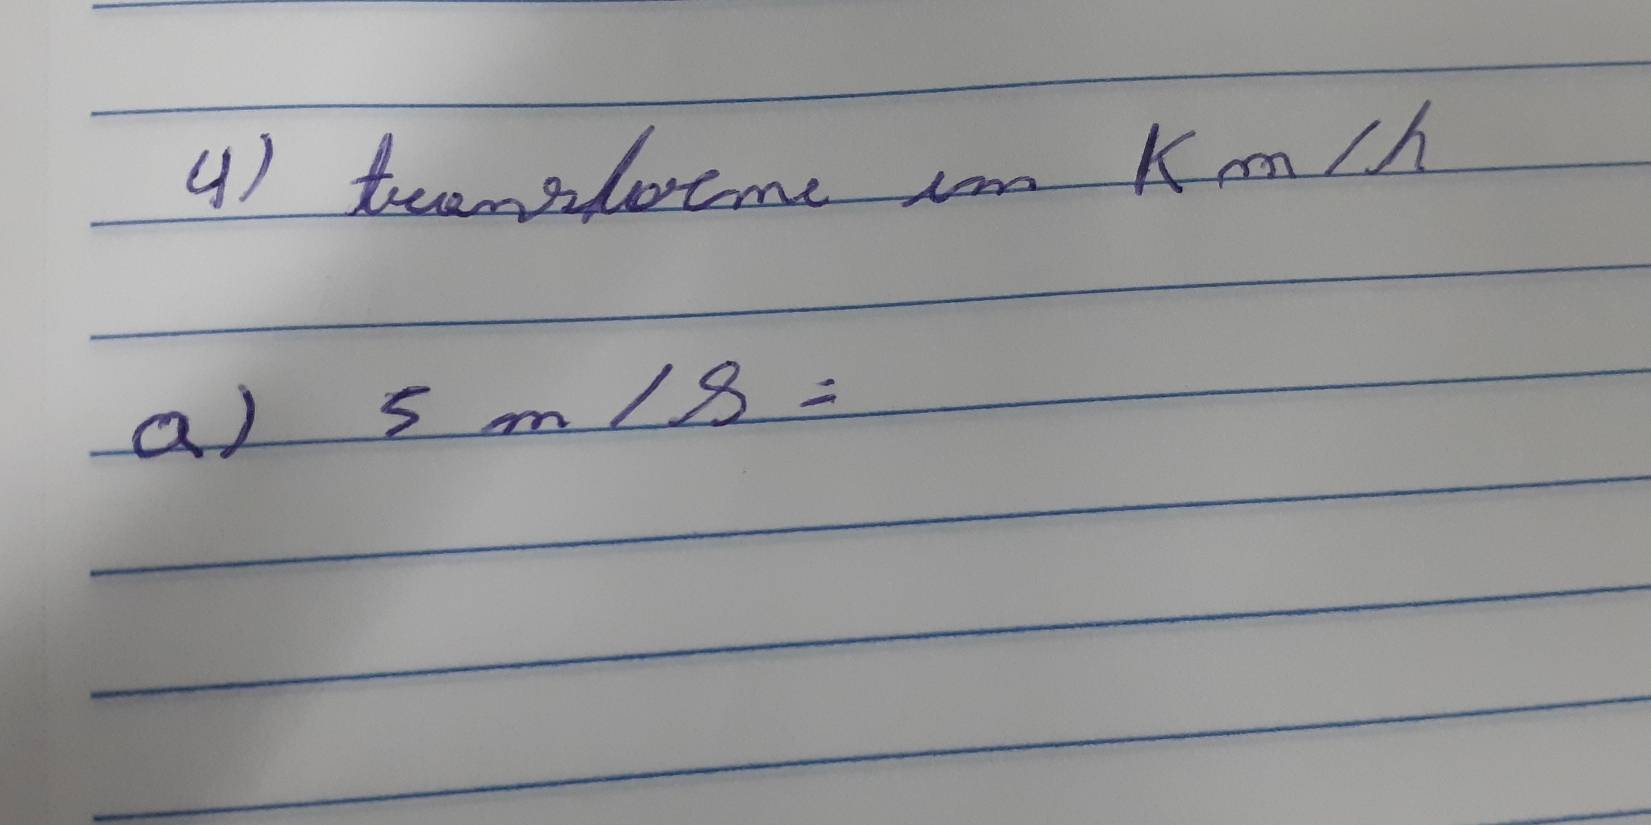 4) transforme em Km/h
a) 5 m/s =